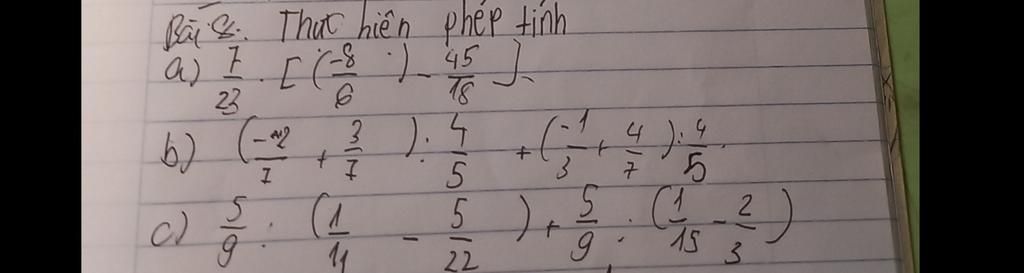 Bài 8. Thực hiện phép tính
a) 7/23 . [(-8/6) - 45/18].
b) (-2/7 + 3/7) : 4/5 + (-1/3 + 4/7) : 4/5.
c) 5/9 : (1/11 - 5/22) + 5/9 : (1/15 - 2/3)